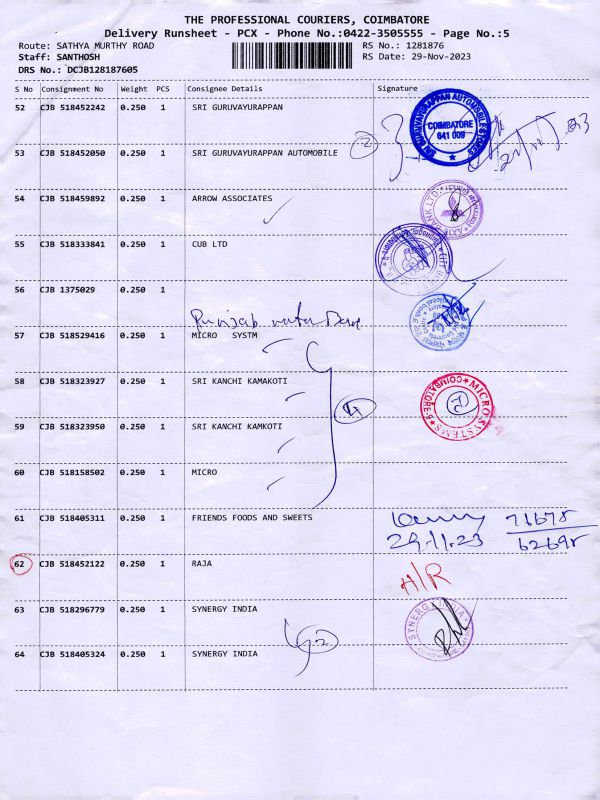 THE PROFESSIONAL COURIERS, COIMBATORE
Delivery Runsheet - PCX - Phone No.:0422-3505555 - Page No.:5
Route: SATHYA MURTHY ROAD RS No.: 1281876
Staff: SANTHOSH RS Date: 29-Nov-2023
DRS No.: DCJB128187605
S No Consignment No Weight PCS Consignee Details Signature
52 CJB 518452242 0.250 1 SRI GURUVAYURAPPAN
SRI GURUVAYURAPPAN AUTOMOBILE STORES
COIMBATORE
641 009
2
53 CJB 518452050 0.250 1 SRI GURUVAYURAPPAN AUTOMOBILE
54 CJB 518459892 0.250 1 ARROW ASSOCIATES
AXIS BANK LTD
55 CJB 518333841 0.250 1 CUB LTD
56 CJB 1375029 0.250 1
Punjab
57 CJB 518529416 0.250 1 MICRO SYSTM
58 CJB 518323927 0.250 1 SRI KANCHI KAMAKOTI
MICROSYSTEMS
COIMBATORE-9
4
59 CJB 518323950 0.250 1 SRI KANCHI KAMKOTI
60 CJB 518158502 0.250 1 MICRO
61 CJB 518405311 0.250 1 FRIENDS FOODS AND SWEETS
29.11.23
62698
62 CJB 518452122 0.250 1 RAJA
H/R
63 CJB 518296779 0.250 1 SYNERGY INDIA
SYNERGY INDIA
2
64 CJB 518405324 0.250 1 SYNERGY INDIA